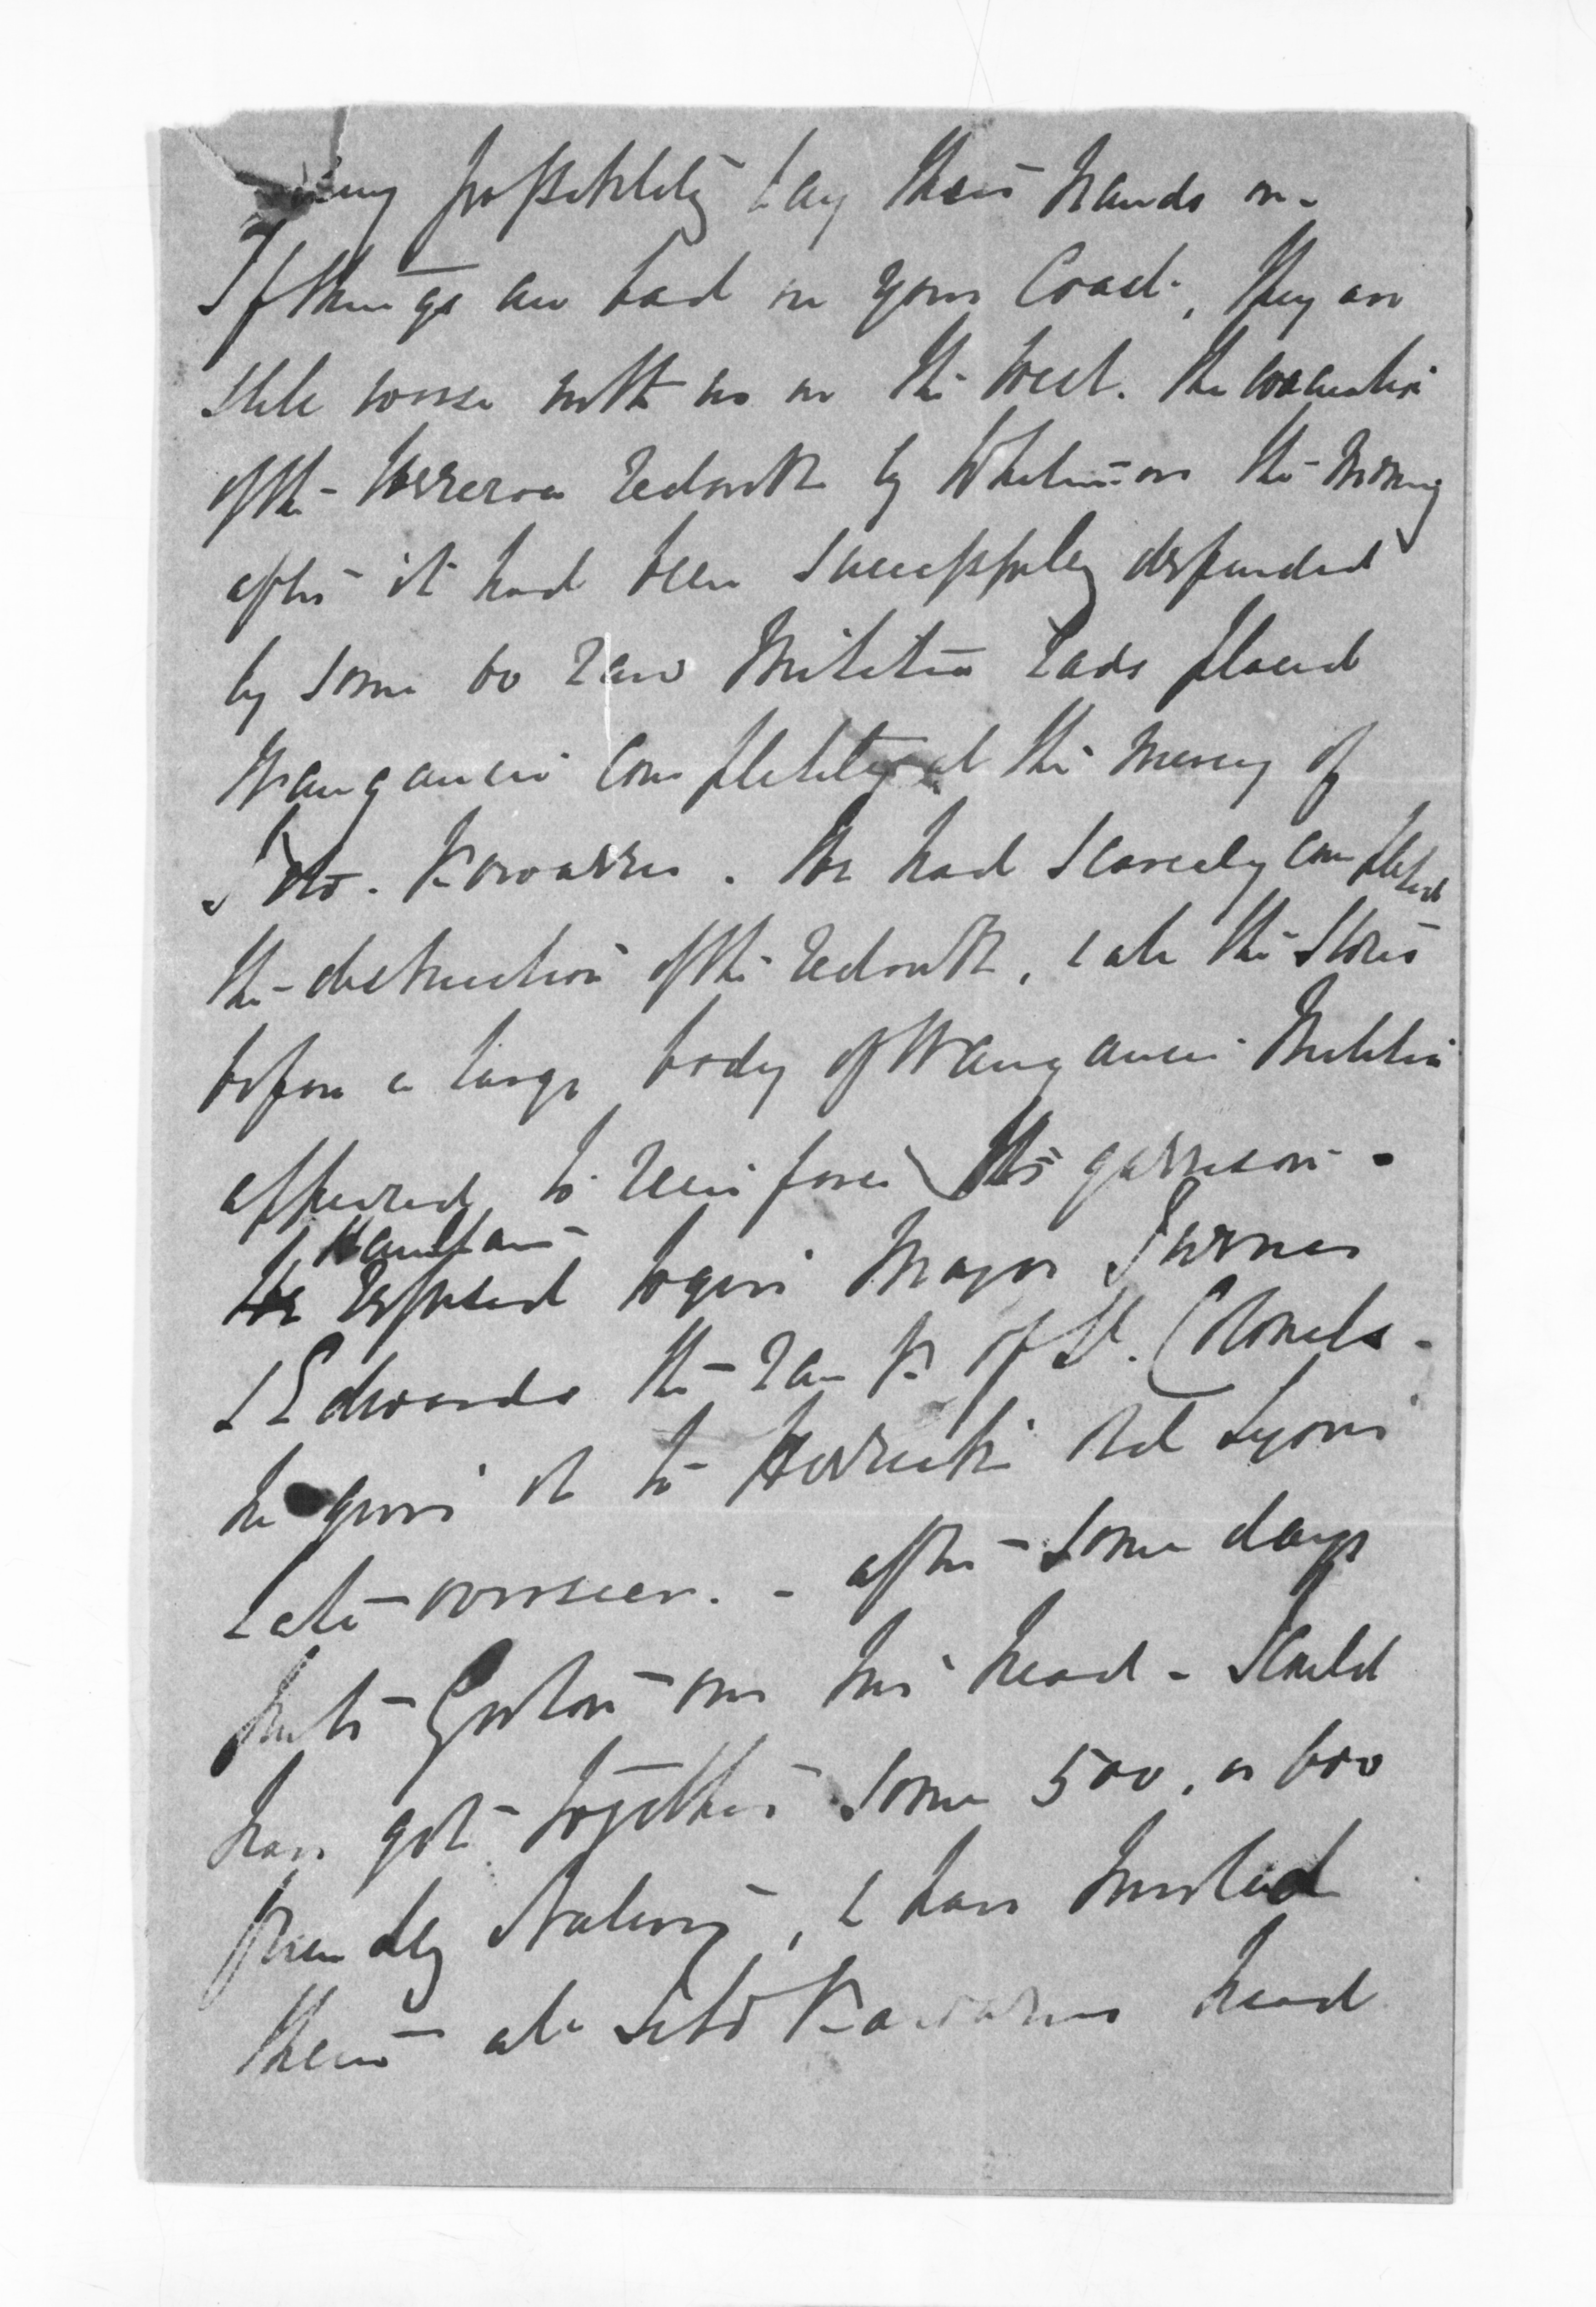 any possibility lay their hands on.
If things are bad on your Coast, they are
still worse with us on the West. The evacuation
of the Wereroa Redoubt by Whitmore on the morning
after it had been successfully defended
by some 60 raw Militia lads placed
Wanganui completely at the mercy of
Tito. Kowarru. He had scarcely completed
the destruction of the Redoubt, & all the Stores
before a large body of Wanganui Militia
appeared to reinforce the garrison.
Haultain
He refused to give Major Turner
& Edwards the rank of Lt. Colonels -
he gives it to Herrick old Lyons
late overseer. - after some days
puts Gorton on his head - I could
have got together some 500, or 600
friendly Natives, & have hurled
them at Tito Kowarus head